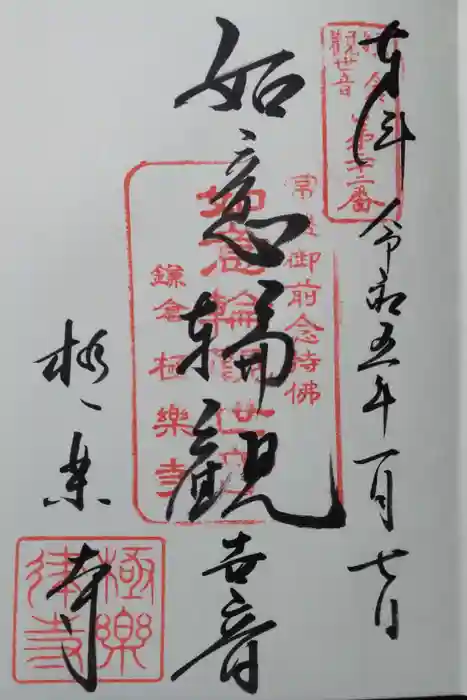 奉拝
令和五年一月七日
鎌倉
観世音
第廿二番
如意輪観世音
常盤御前念持佛
如意輪観世音
鎌倉極樂寺
極楽寺
極樂律寺